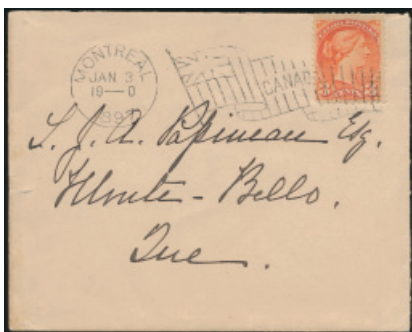 MONTREAL
JAN 3
19—0
1897
CANADA
3 CENTS 3
L. J. A. Papineau Esq.
Monte-Bello.
Que.